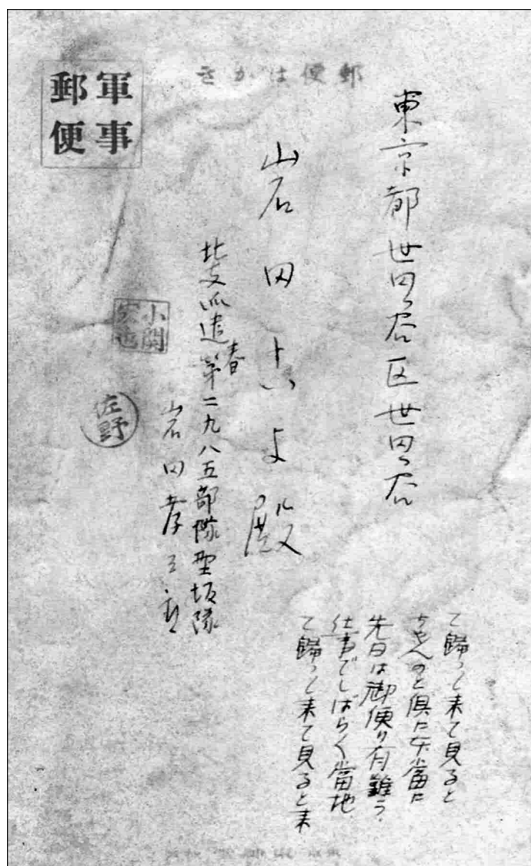 郵便はかき
軍事
郵便
東京都世田ヶ谷区世田ヶ谷
岩田きよ殿
北支派遣春第二九八五部隊型坂隊
岩田孝三郎
小関
佐野
て歸って来て見ると
ちやんのと倶た
先日は御便り有難う、
仕事でしばらく當地
て歸って来て見ると未